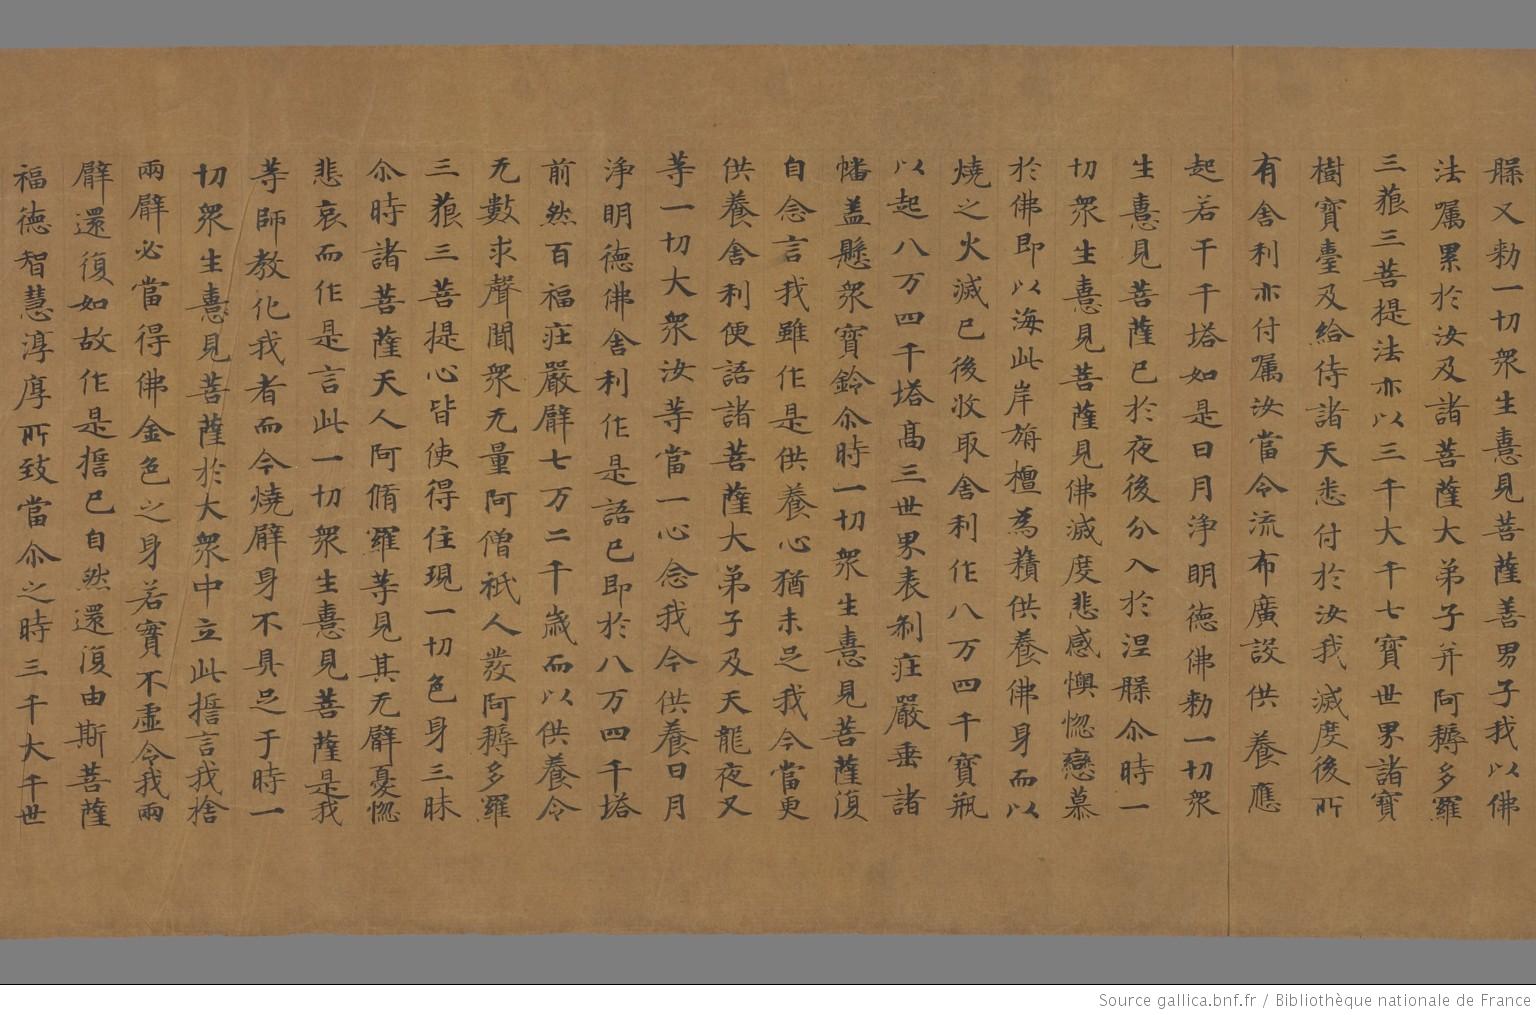 槃又勑一切衆生憙見菩薩善男子我以佛
法嘱累於汝及諸菩薩大弟子并阿耨多羅
三藐三菩提法亦以三千大千七寶世界諸寶
樹寶臺及給侍諸天悉付於汝我滅度後所
有舍利亦付嘱汝當令流布廣設供養應
起若干千塔如是日月淨明德佛勑一切衆
生憙見菩薩已於夜後分入於涅槃尒時一
切衆生憙見菩薩見佛滅度悲感懊惚戀慕
於佛即以海此岸旃檀為䕽供養佛身而以
燒之火滅已後收取舍利作八万四千寶瓶
以起八万四千塔高三世界表刹庄嚴垂諸
幡盖懸衆寶鈴尒時一切衆生憙見菩薩復
自念言我雖作是供養心猶未足我今當更
供養舍利便語諸菩薩大弟子及天龍夜叉
等一切大衆汝等當一心念我今供養日月
淨明德佛舍利作是語已即於八万四千塔
前然百福庄嚴臂七万二千歲而以供養令
无數求聲聞衆无量阿僧祇人發阿耨多羅
三藐三菩提心皆使得住現一切色身三昧
尒時諸菩薩天人阿脩羅等見其无臂憂惚
悲哀而作是言此一切衆生憙見菩薩是我
等師教化我者而今燒臂身不具足于時一
切衆生憙見菩薩於大衆中立此誓言我捨
兩臂必當得佛金色之身若實不虛令我兩
臂還復如故作是誓已自然還復由斯菩薩
福德智慧淳厚所致當尒之時三千大千世
Source gallica.bnf.fr / Bibliothèque nationale de France